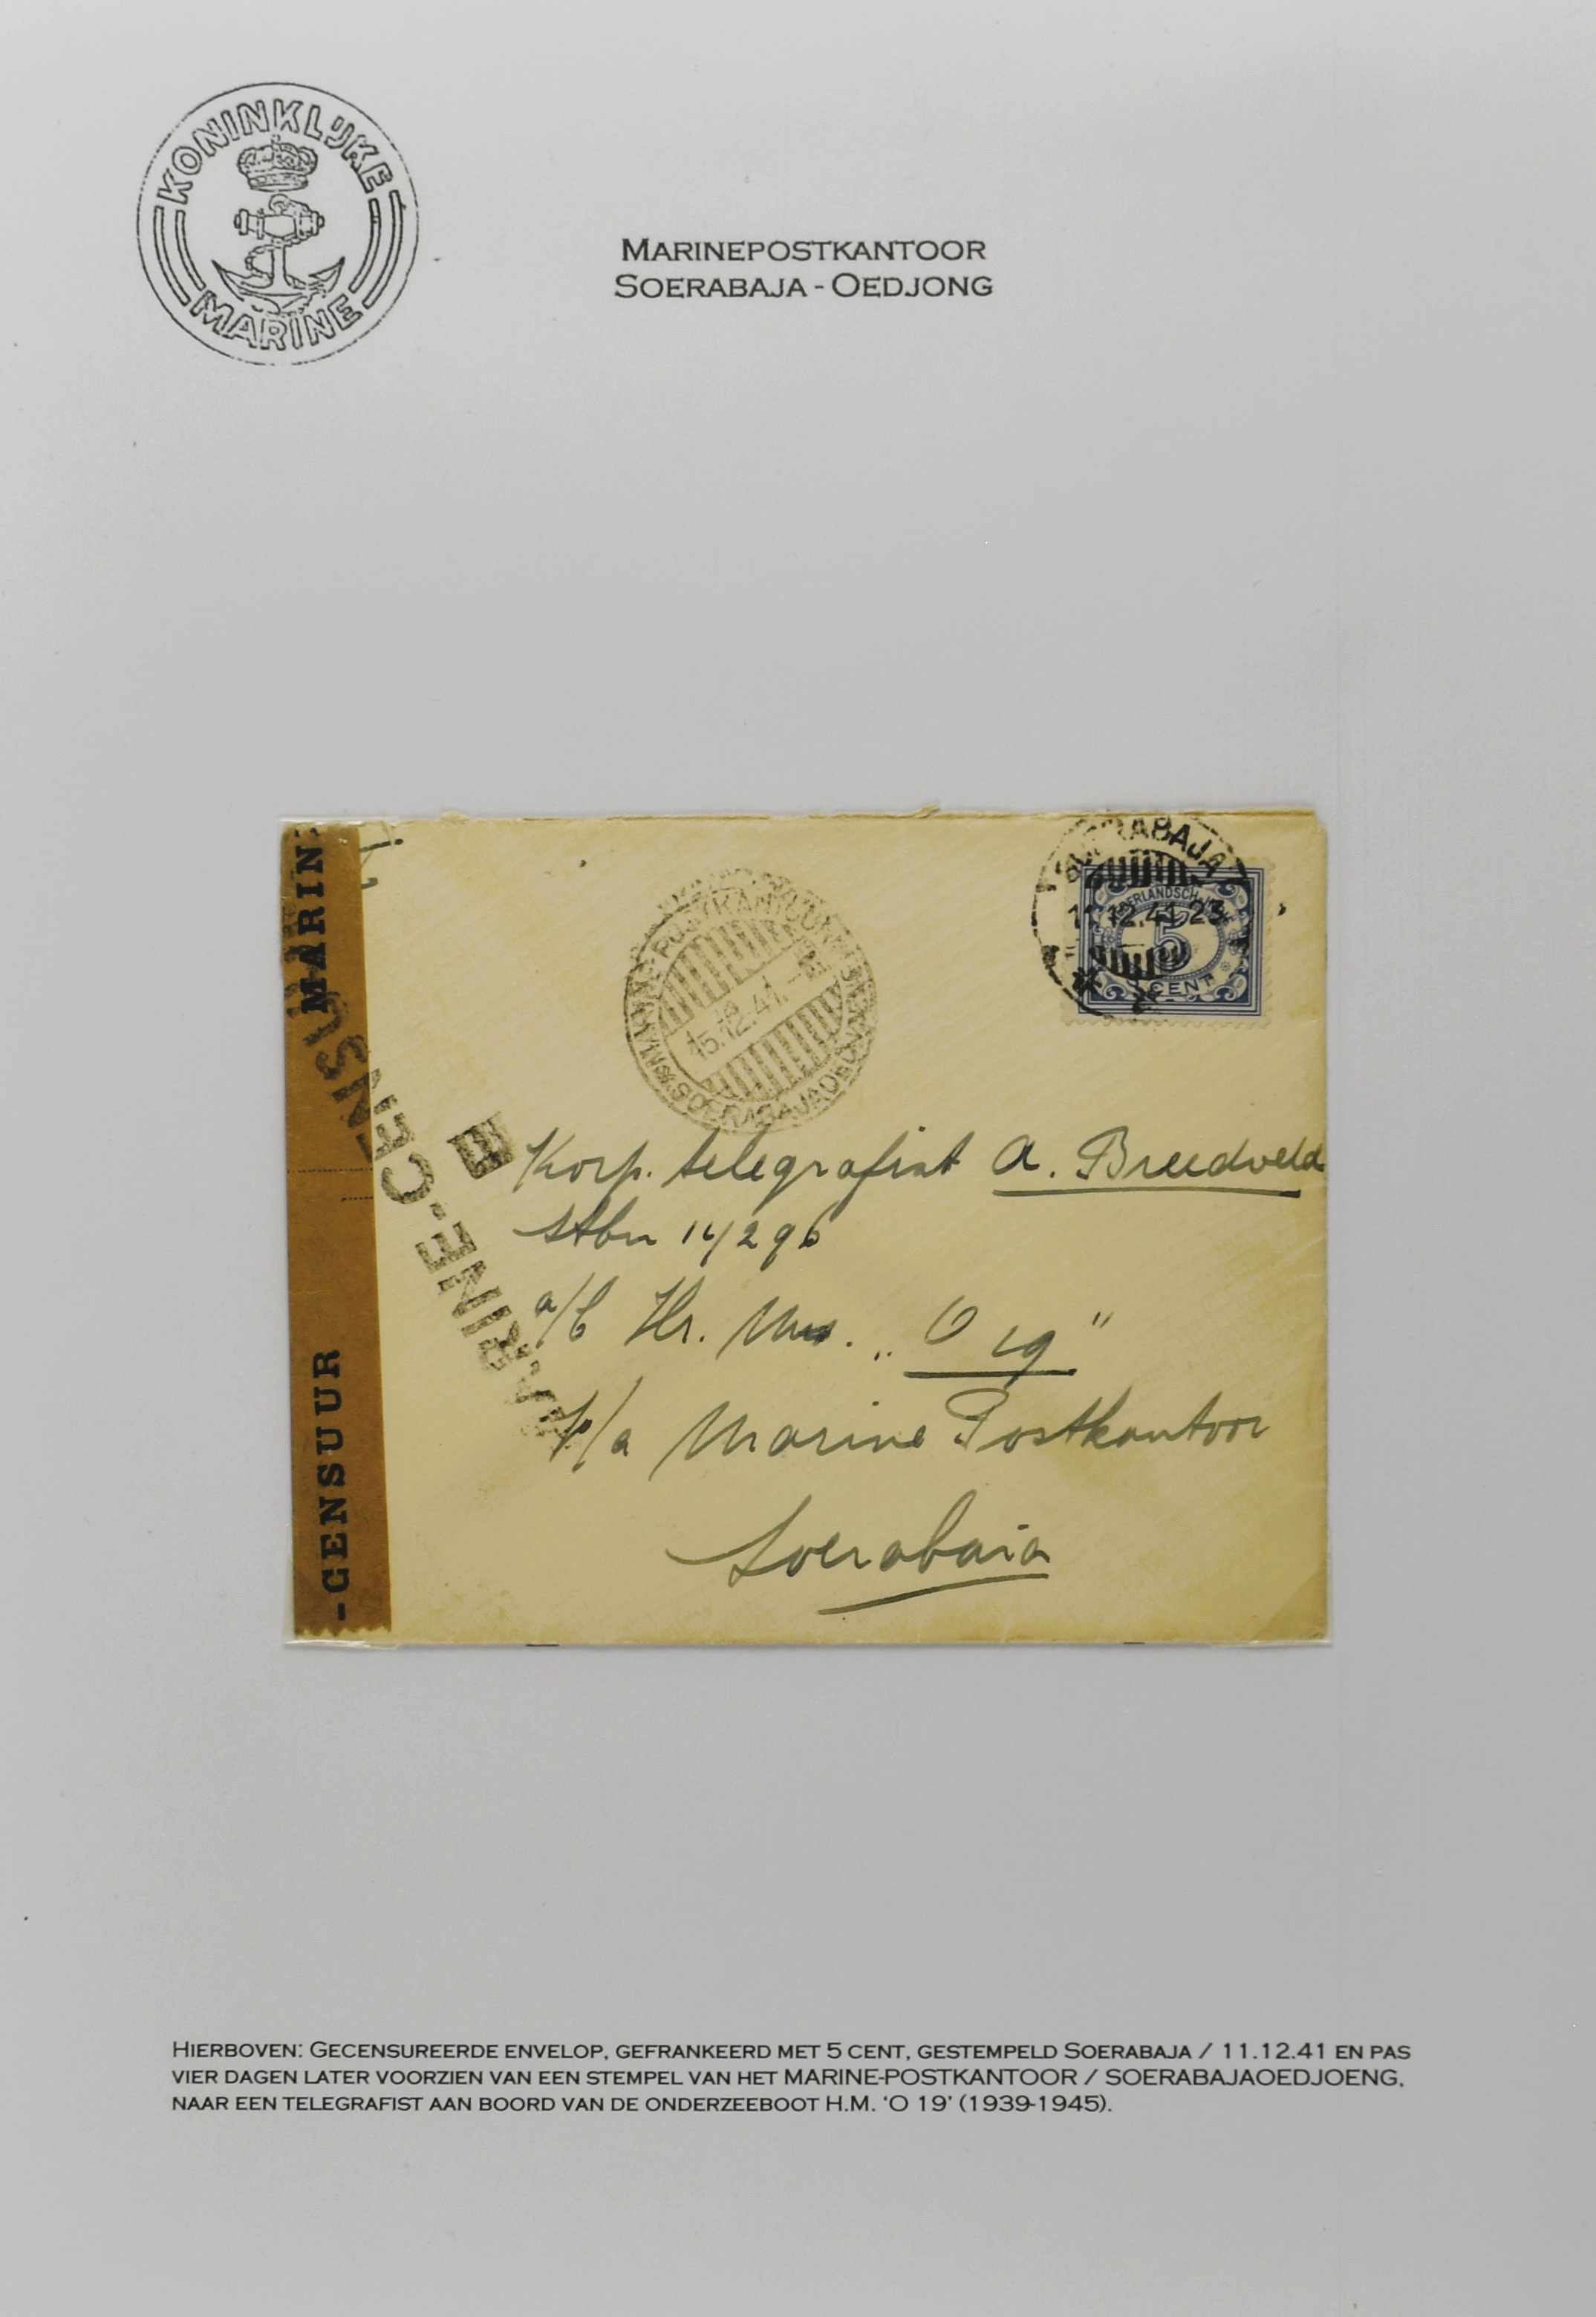 KONINKLIJKE
MARINE
MARINEPOSTKANTOOR
SOERABAJA - OEDJONG
SOERABAJA
11.12.41.23
NEDERLANDSCH-INDIË
5
CENT
MARINE-POSTKANTOOR
15.12.41.
SOERABAJAOEDJOENG
MARIN
-CENSUUR
MARINE.CENSU
E
Korp. telegrafist A. Breedveld
stbn 14296
a/b Hr. Ms. „O 19"
p/a Marine Postkantoor
Soerabaia
HIERBOVEN: GECENSUREERDE ENVELOP, GEFRANKEERD MET 5 CENT, GESTEMPELD SOERABAJA / 11.12.41 EN PAS
VIER DAGEN LATER VOORZIEN VAN EEN STEMPEL VAN HET MARINE-POSTKANTOOR / SOERABAJAOEDJOENG,
NAAR EEN TELEGRAFIST AAN BOORD VAN DE ONDERZEEBOOT H.M. 'O 19' (1939-1945).